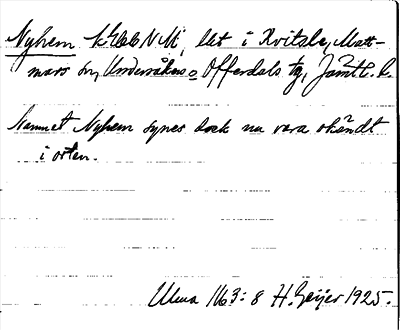 Nyhem kr66 NM, bet i Kvitsle, Matt-
mars sn, Undersåkers o Offerdals tg, Jämtl. l.
Namnet Nyhem synes dock nu vara okändt
i orten.
Ulma 163:8 H. Geijer 1925.